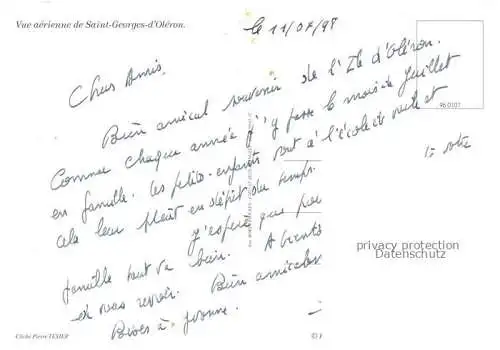 Vue aérienne de Saint-Georges-d'Oléron.
le 11/07/98
Chers Amis,
Bien amical souvenir de l'Ile d'Oléron.
Comme chaque année j'y passe le mois de Juillet
en famille. Les petits-enfants vont à l'école de voile et
cela leur plaît en dépit du temps.
J'espère que
famille tout va bien. A bientôt
de vous revoir. Bien amicales
Bises à Yvonne.
96 0101
privacy protection
Datenschutz
Cliché Pierre TEXIER